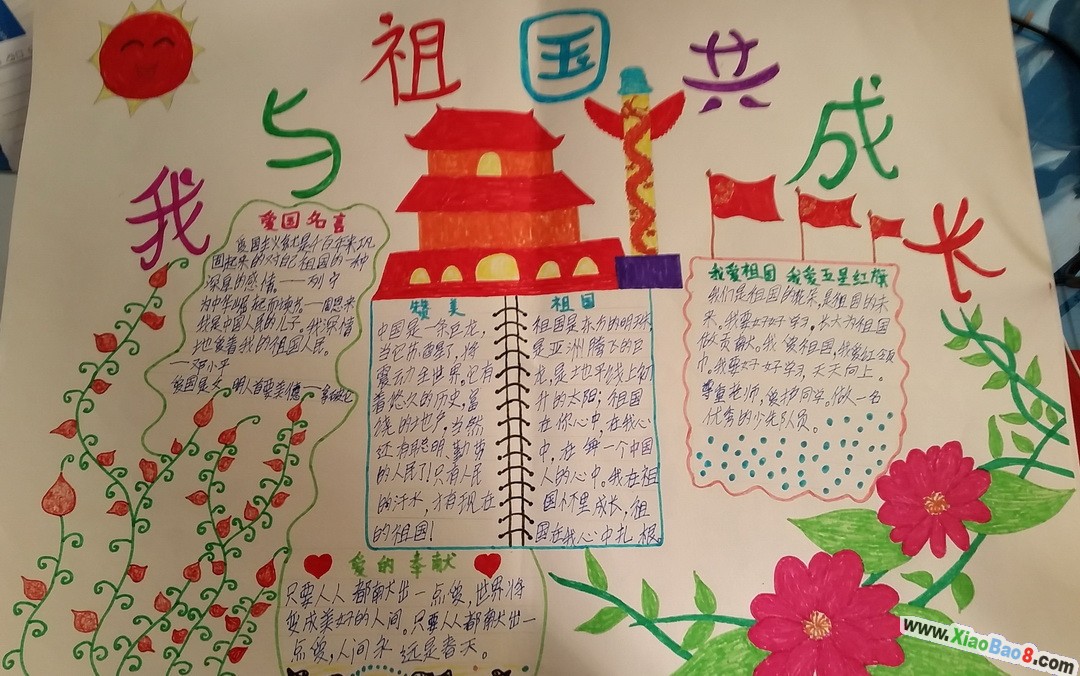 我与祖国共成长
爱国名言
爱国主义就是千百年来巩
固起来的对自己祖国的一种
深厚的感情——列宁
为中华崛起而读书——周恩来
我是中国人民的儿子。我深情
地爱着我的祖国人民。
邓小平
赞美
中国是一条巨龙，
当它苏醒了，将
震动全世界。它有
着悠久的历史，富
饶的地产，当然
还有聪明、勤劳
的人民了！只有人民
的汗水，才有现在
的祖国！
祖国
祖国是东方的明珠
是亚洲腾飞的巨
龙，是地平线上初
升的太阳；祖国
在你心中，在我心
中，在每一个中国
人的心中。我在祖
国怀里成长，祖
国在我心中扎根。
我爱祖国 我爱五星红旗
我们是祖国的花朵，是祖国的未
来。我要好好学习，长大为祖国
做贡献。我爱祖国，我爱红领
巾。我要好好学习，天天向上。
尊重老师，爱护同学。做一名
优秀的少先队员。
爱的奉献
只要人人都献出一点爱，世界将
变成美好的人间。只要人人都献出一
点爱，人间永远是春天。
www.XiaoBao8.com